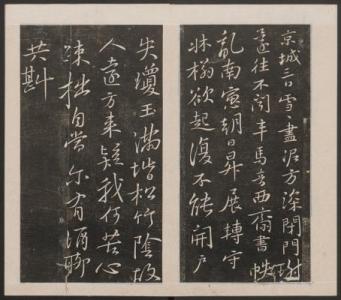 京城三日雪〻盡泥方深閉門謝
還往不聞車馬音西齋書帙
亂南窗朝日昇展轉守
牀榻欲起復不能開戶
失瓊玉滿堦松竹陰故
人遠方來疑我何苦心
疎拙自當尔有酒聊
共斟